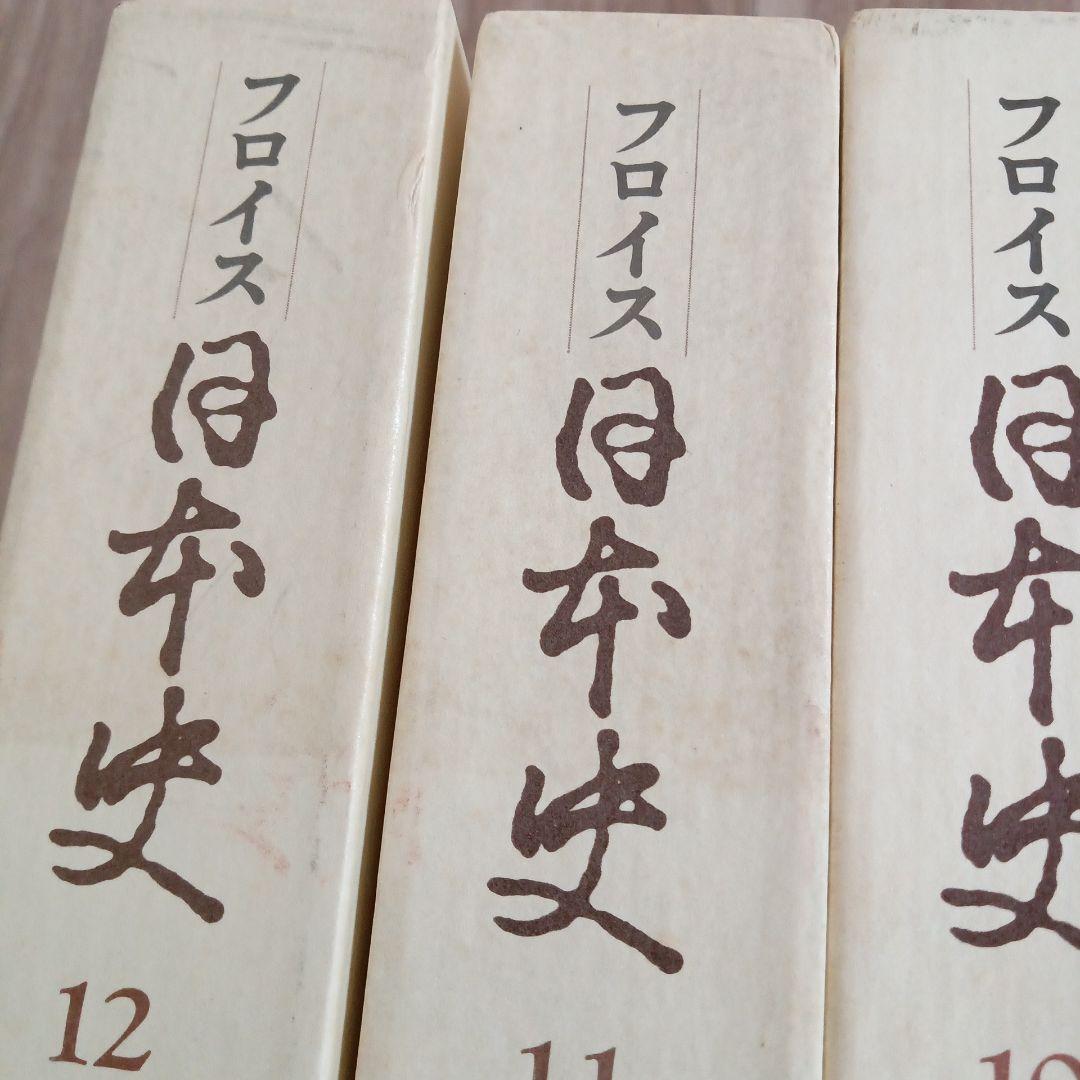 フロイス
日本史
12
フロイス
日本史
11
フロイス
日本史
10